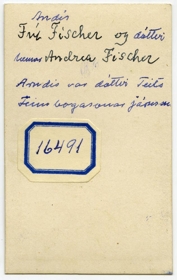 Arndís
Frú Fischer og dóttir
hennar Andrea Fischer
Arndís var dóttir Teits
Finnbogasonar járnsm
16491